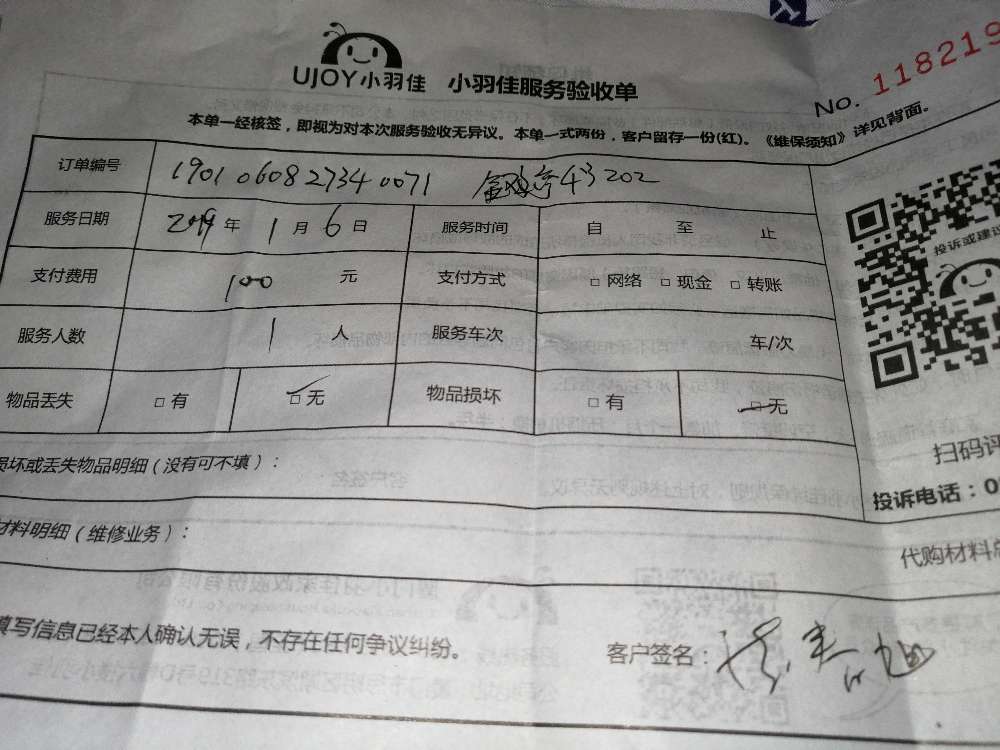 UJOY小羽佳 小羽佳服务验收单
No. 118219
本单一经核签，即视为对本次服务验收无异议。本单一式两份，客户留存一份(红)。《维保须知》详见背面。
订单编号 1901060827340071 43 202
服务日期 2019 年 1 月 6 日 服务时间 自 至 止
投诉或建议
支付费用 100 元 支付方式 □ 网络 □ 现金 □ 转账
服务人数 1 人 服务车次 车/次
物品丢失 □ 有 □ 无 物品损坏 □ 有 □ 无
扫码评
损坏或丢失物品明细（没有可不填）：
投诉电话：0
材料明细（维修业务）：
代购材料
填写信息已经本人确认无误，不存在任何争议纠纷。
客户签名：